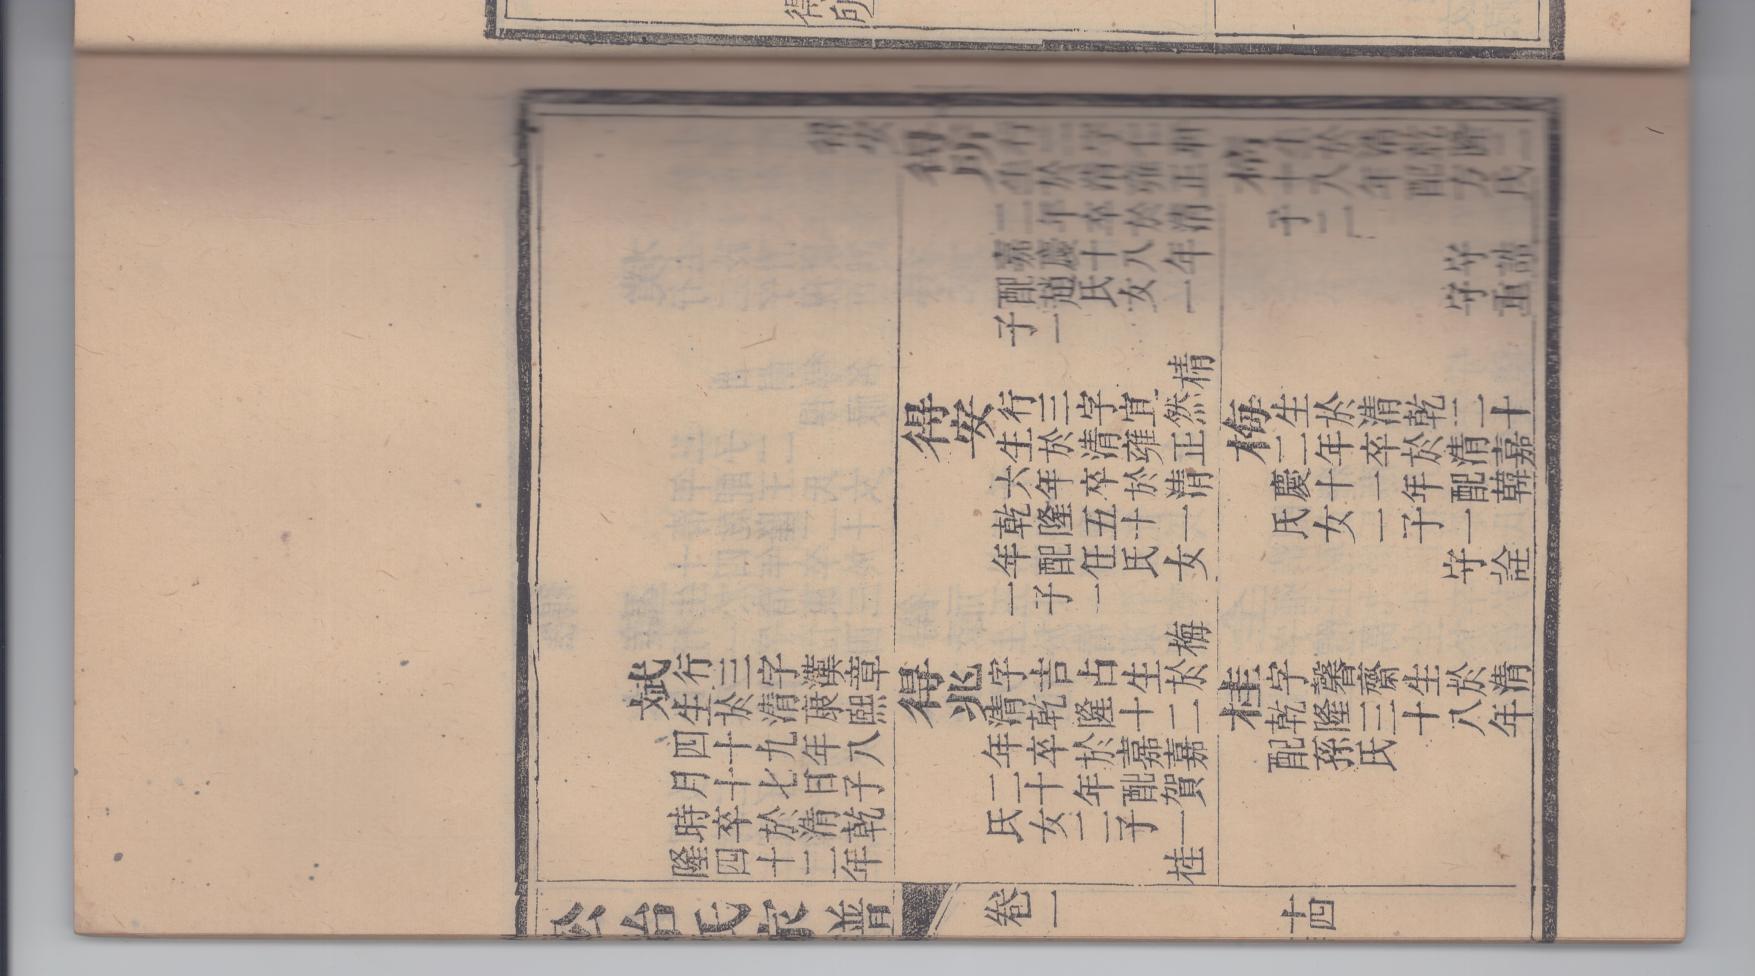 得所
得安
斌 行三字漢章
生於清康熙
四十九年八
月十七日子
時卒於清乾
隆四十二年
得所
生於清雍正
二年卒於清
嘉慶十八年
配趙氏女一
子一
棈
得安 行三字宜然
生於清雍正
六年卒於清
乾隆五十一
年配任氏女
一子一
梅
得兆 字吉占生於
清乾隆十二
年卒於嘉
二十年配賀
氏女二子一
桂
棈
十八年配方氏
子二
守誥
守重
梅 生於清乾二十
二年卒於清嘉
慶十一年配韓
氏女一子一
守詮
桂 字馨齋生於清
乾隆三十八年
配孫氏
公冶氏宗譜 卷一 十四